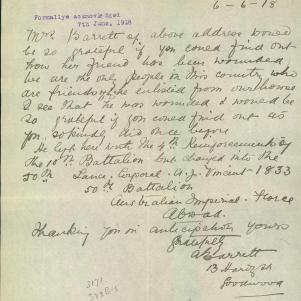 6-6-18
Formally acknowledged
7th June, 1918
Mrs Barrett of above address would
be so grateful if you could find out
how her friend has been wounded
We are the only people in this country who
are friends & he enlisted from our home
I see that he was wounded & would be
so grateful if you could find out as
you so kindly did once before
He left here with the 4th Reinforcements of
the 10th Battalion but changed into the
50th Lance Corporal A. J. Vincent 1833
50th Battalion
Australian Imperial Force
Abroad.
Thanking you in anticipation yours
gratefully
A Barrett
13 Hardy St
Goodwood